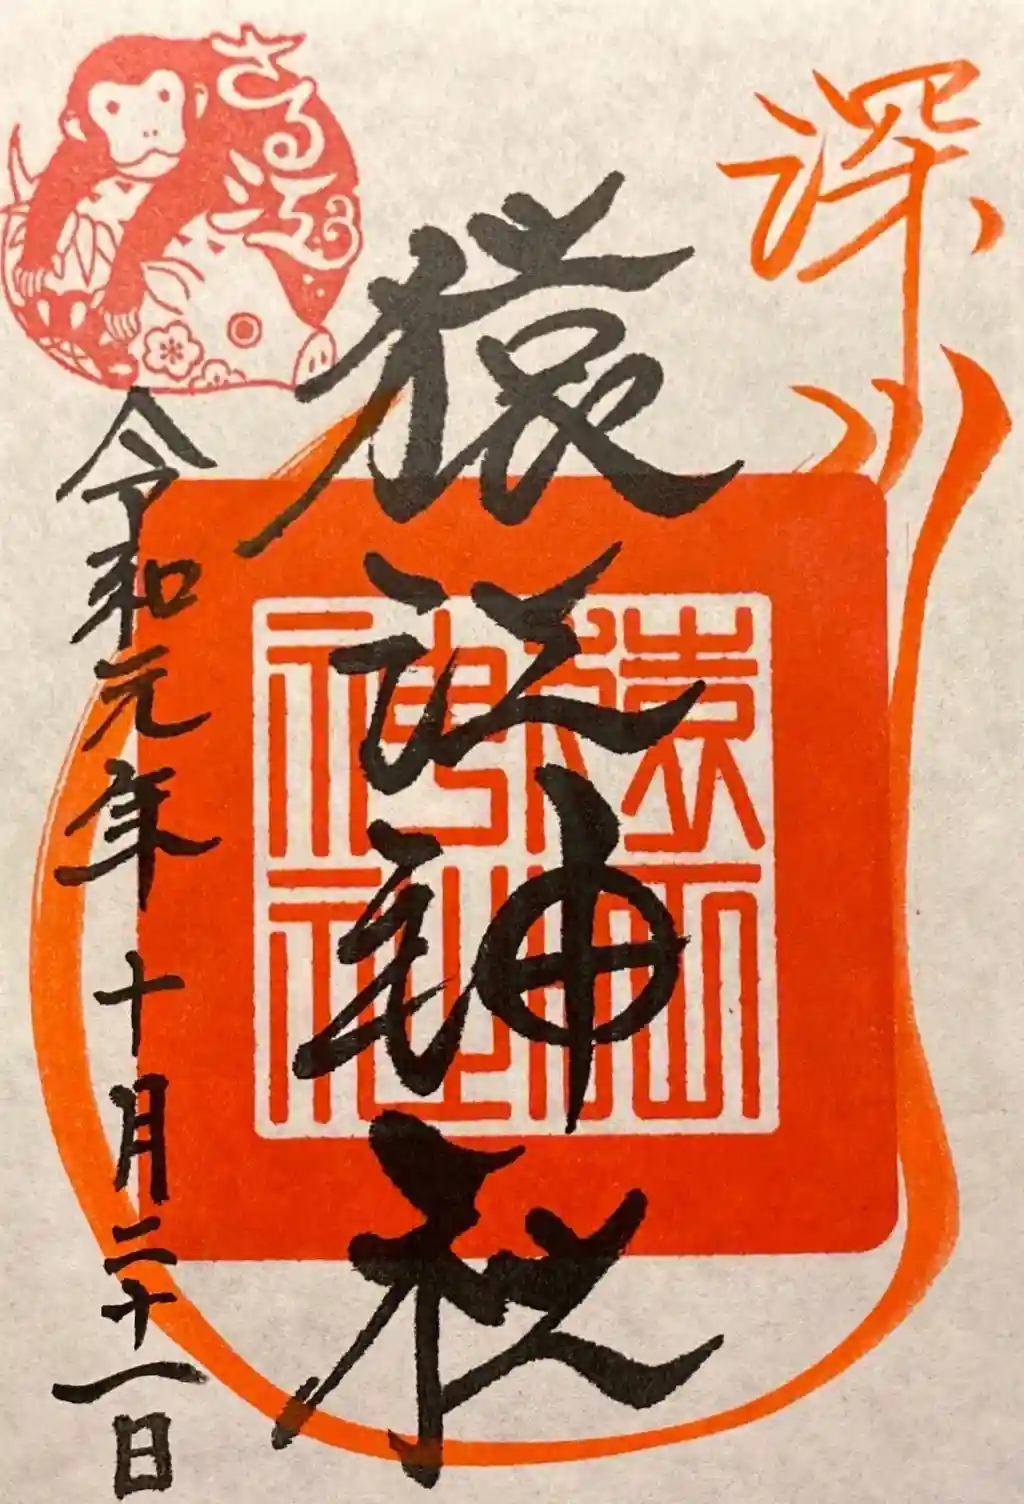 深川
猿江神社
猿江神社
令和元年十月二十一日